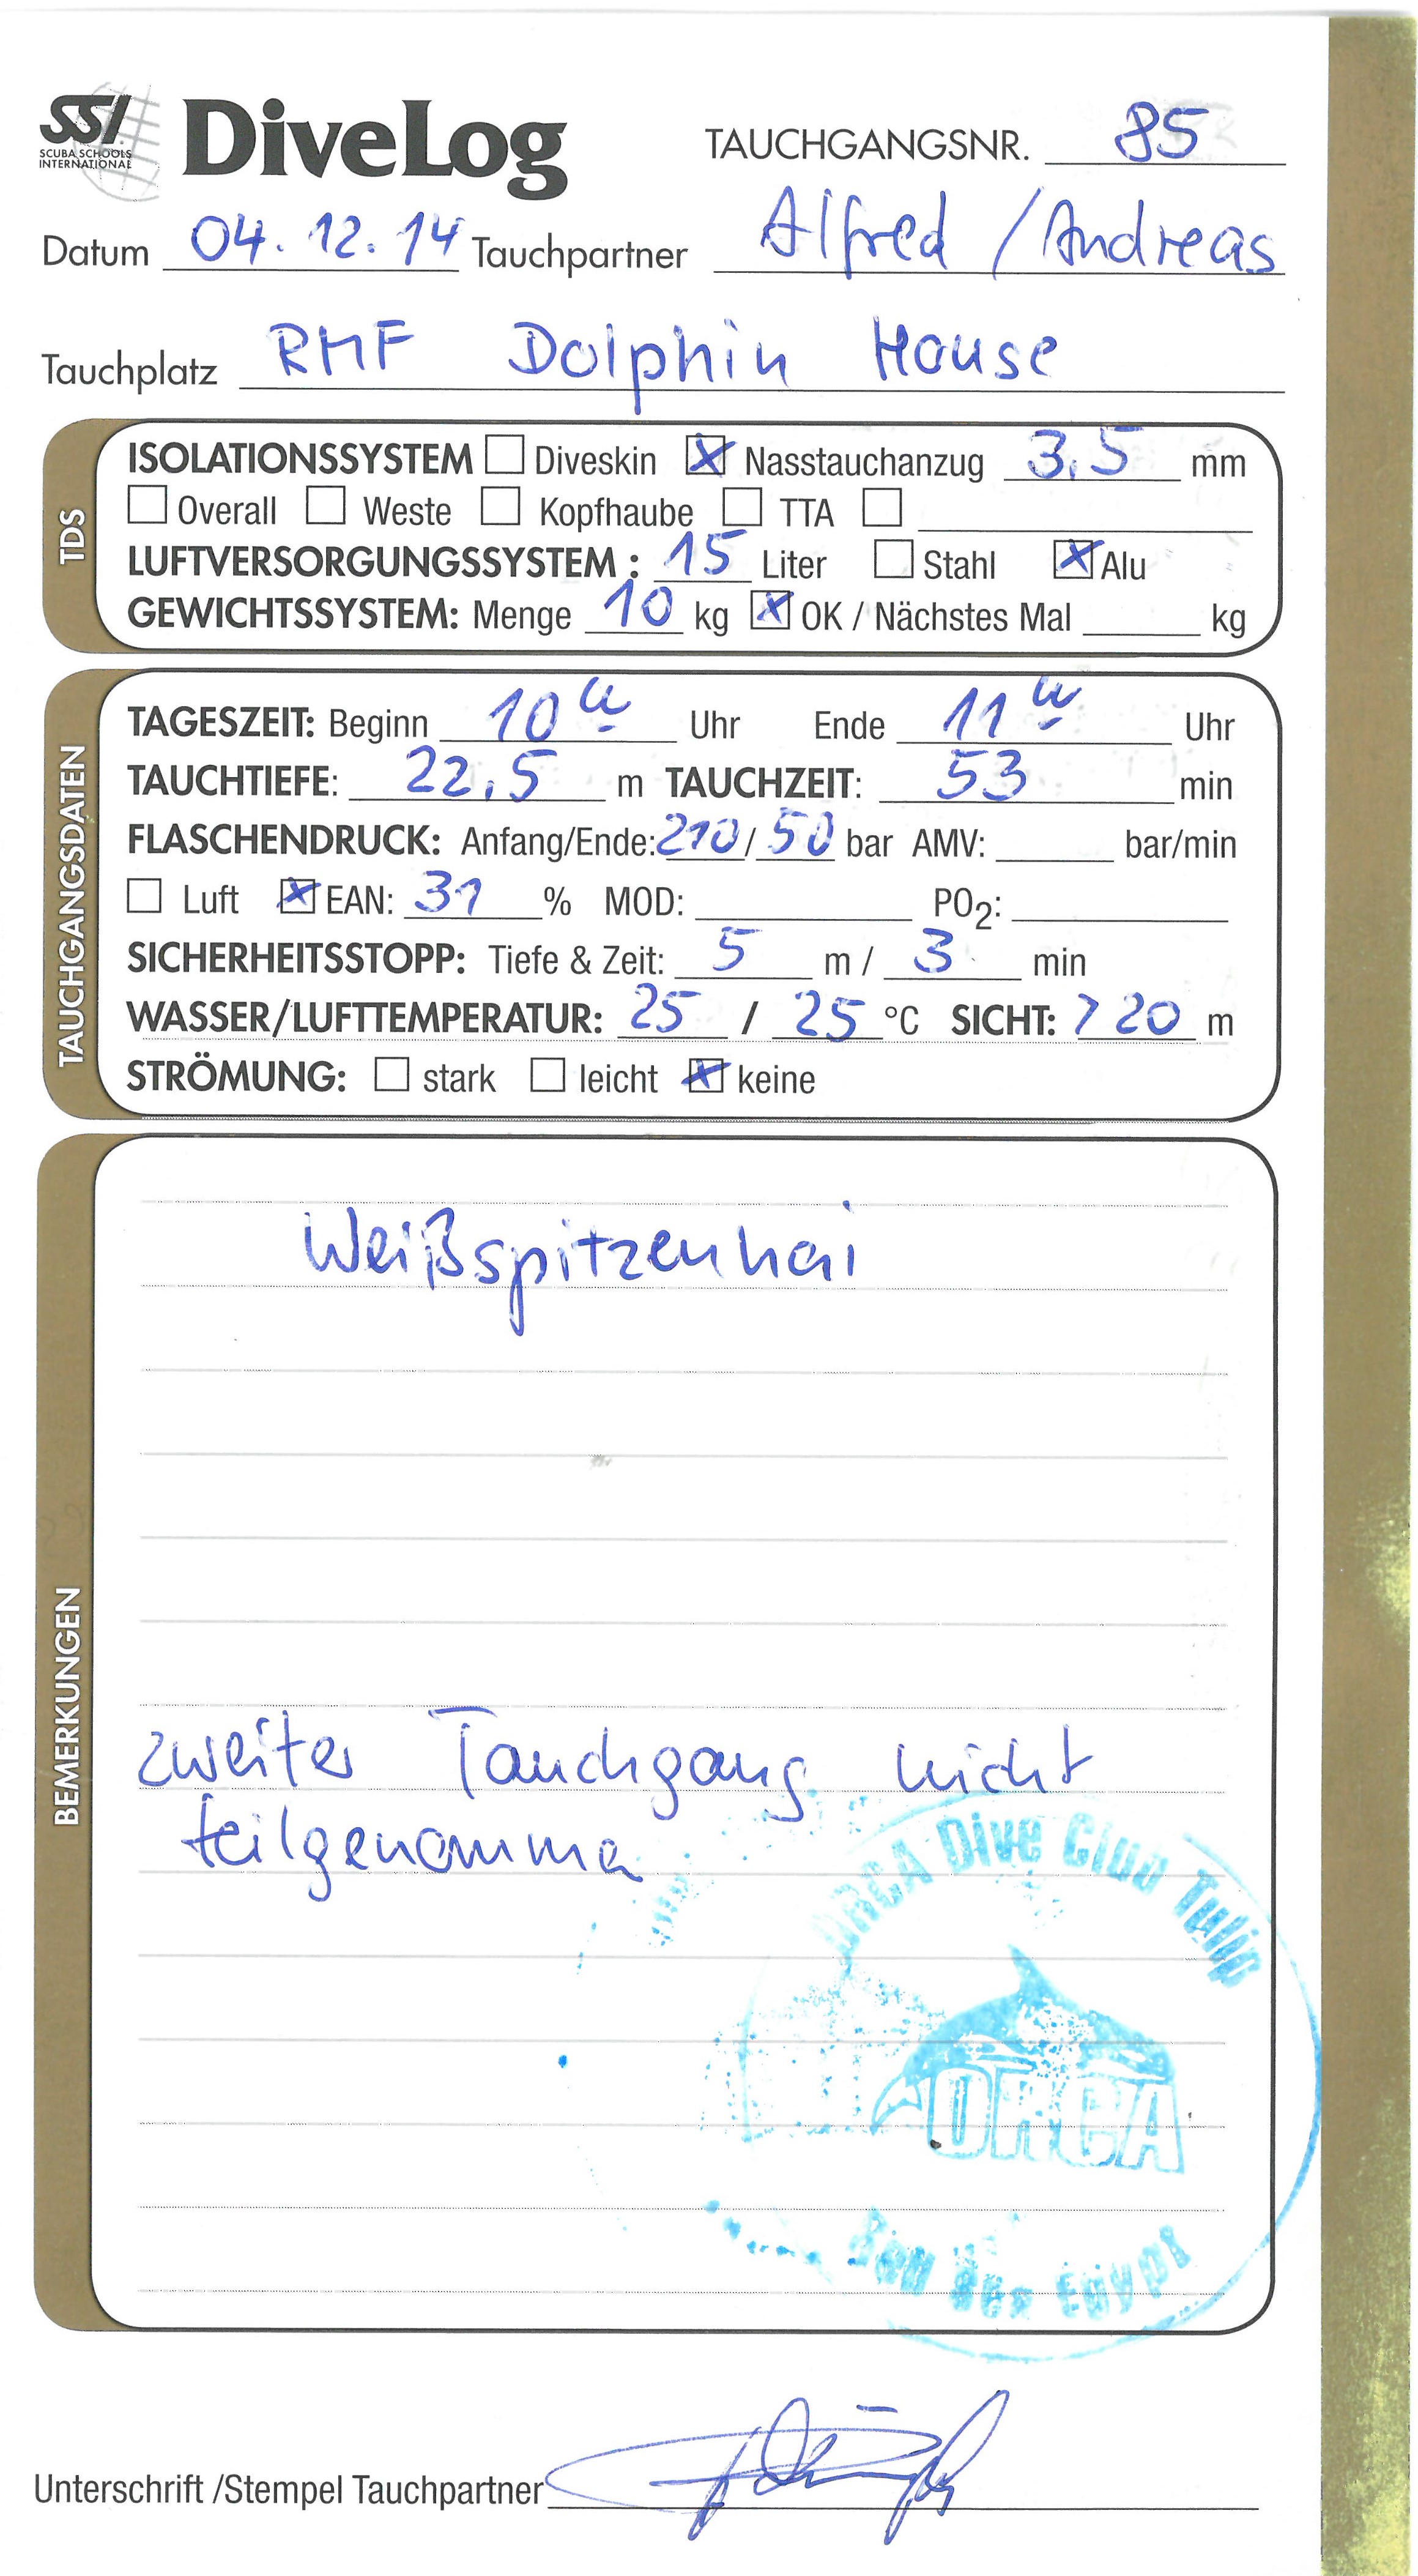 SSI
SCUBA SCHOOLS
INTERNATIONAL
DiveLog
TAUCHGANGSNR. 85
Datum 04.12.14 Tauchpartner Alfred / Andreas
Tauchplatz RMF Dolphin House
TDS
ISOLATIONSSYSTEM ☐ Diveskin ☒ Nasstauchanzug 3,5 mm
☐ Overall ☐ Weste ☐ Kopfhaube ☐ TTA ☐
LUFTVERSORGUNGSSYSTEM : 15 Liter ☐ Stahl ☒ Alu
GEWICHTSSYSTEM: Menge 10 kg ☒ OK / Nächstes Mal kg
TAUCHGANGSDATEN
TAGESZEIT: Beginn 10 Uhr Ende 11 Uhr
TAUCHTIEFE: 22,5 m TAUCHZEIT: 53 min
FLASCHENDRUCK: Anfang/Ende: 210/50 bar AMV: bar/min
☐ Luft ☒ EAN: 31 % MOD: PO2:
SICHERHEITSSTOPP: Tiefe & Zeit: 5 m / 3 min
WASSER/LUFTTEMPERATUR: 25 / 25 °C SICHT: > 20 m
STRÖMUNG: ☐ stark ☐ leicht ☒ keine
BEMERKUNGEN
Weißspitzenhai
zweiter Tauchgang nicht
teilgenomma
ORCA Dive Club Tulip
ORCA
Egypt
Unterschrift /Stempel Tauchpartner